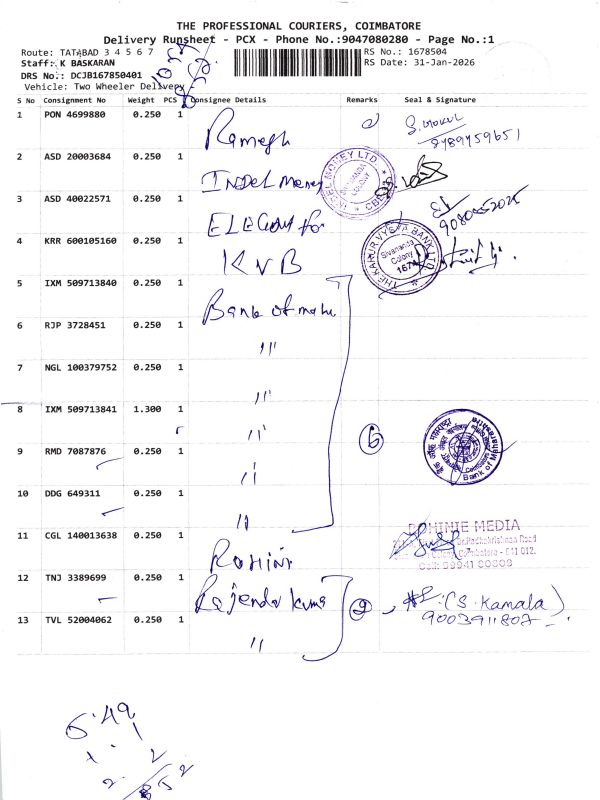 THE PROFESSIONAL COURIERS, COIMBATORE
Delivery Runsheet - PCX - Phone No.:9047080280 - Page No.:1
Route: TATABAD 3 4 5 6 7
RS No.: 1678504
Staff: K BASKARAN
RS Date: 31-Jan-2026
DRS No.: DCJB167850401
Vehicle: Two Wheeler Delivery -
S No Consignment No Weight PCS Consignee Details Remarks Seal & Signature
1 PON 4699880 0.250 1 Ramesh
2 ASD 20003684 0.250 1 INDEL Money
INDEL MONEY LTD.
SIVANANDA COLONY
3 ASD 40022571 0.250 1
4 KRR 600105160 0.250 1 KVB
THE KARUR VYSYA BANK LTD
Sivananda Colony
1674
5 IXM 509713840 0.250 1 Bank of maha
6 RJP 3728451 0.250 1 "
7 NGL 100379752 0.250 1 "
8 IXM 509713841 1.300 1 "
9 RMD 7087876 0.250 1 "
10 DDG 649311 0.250 1 "
6
Bank of Maharashtra
11 CGL 140013638 0.250 1 ROHINI
ROHINIE MEDIA
Coimbatore - 641 012.
12 TNJ 3389699 0.250 1 Rajendra Kuma
2 (S. Kamala)
9003911807
13 TVL 52004062 0.250 1 "